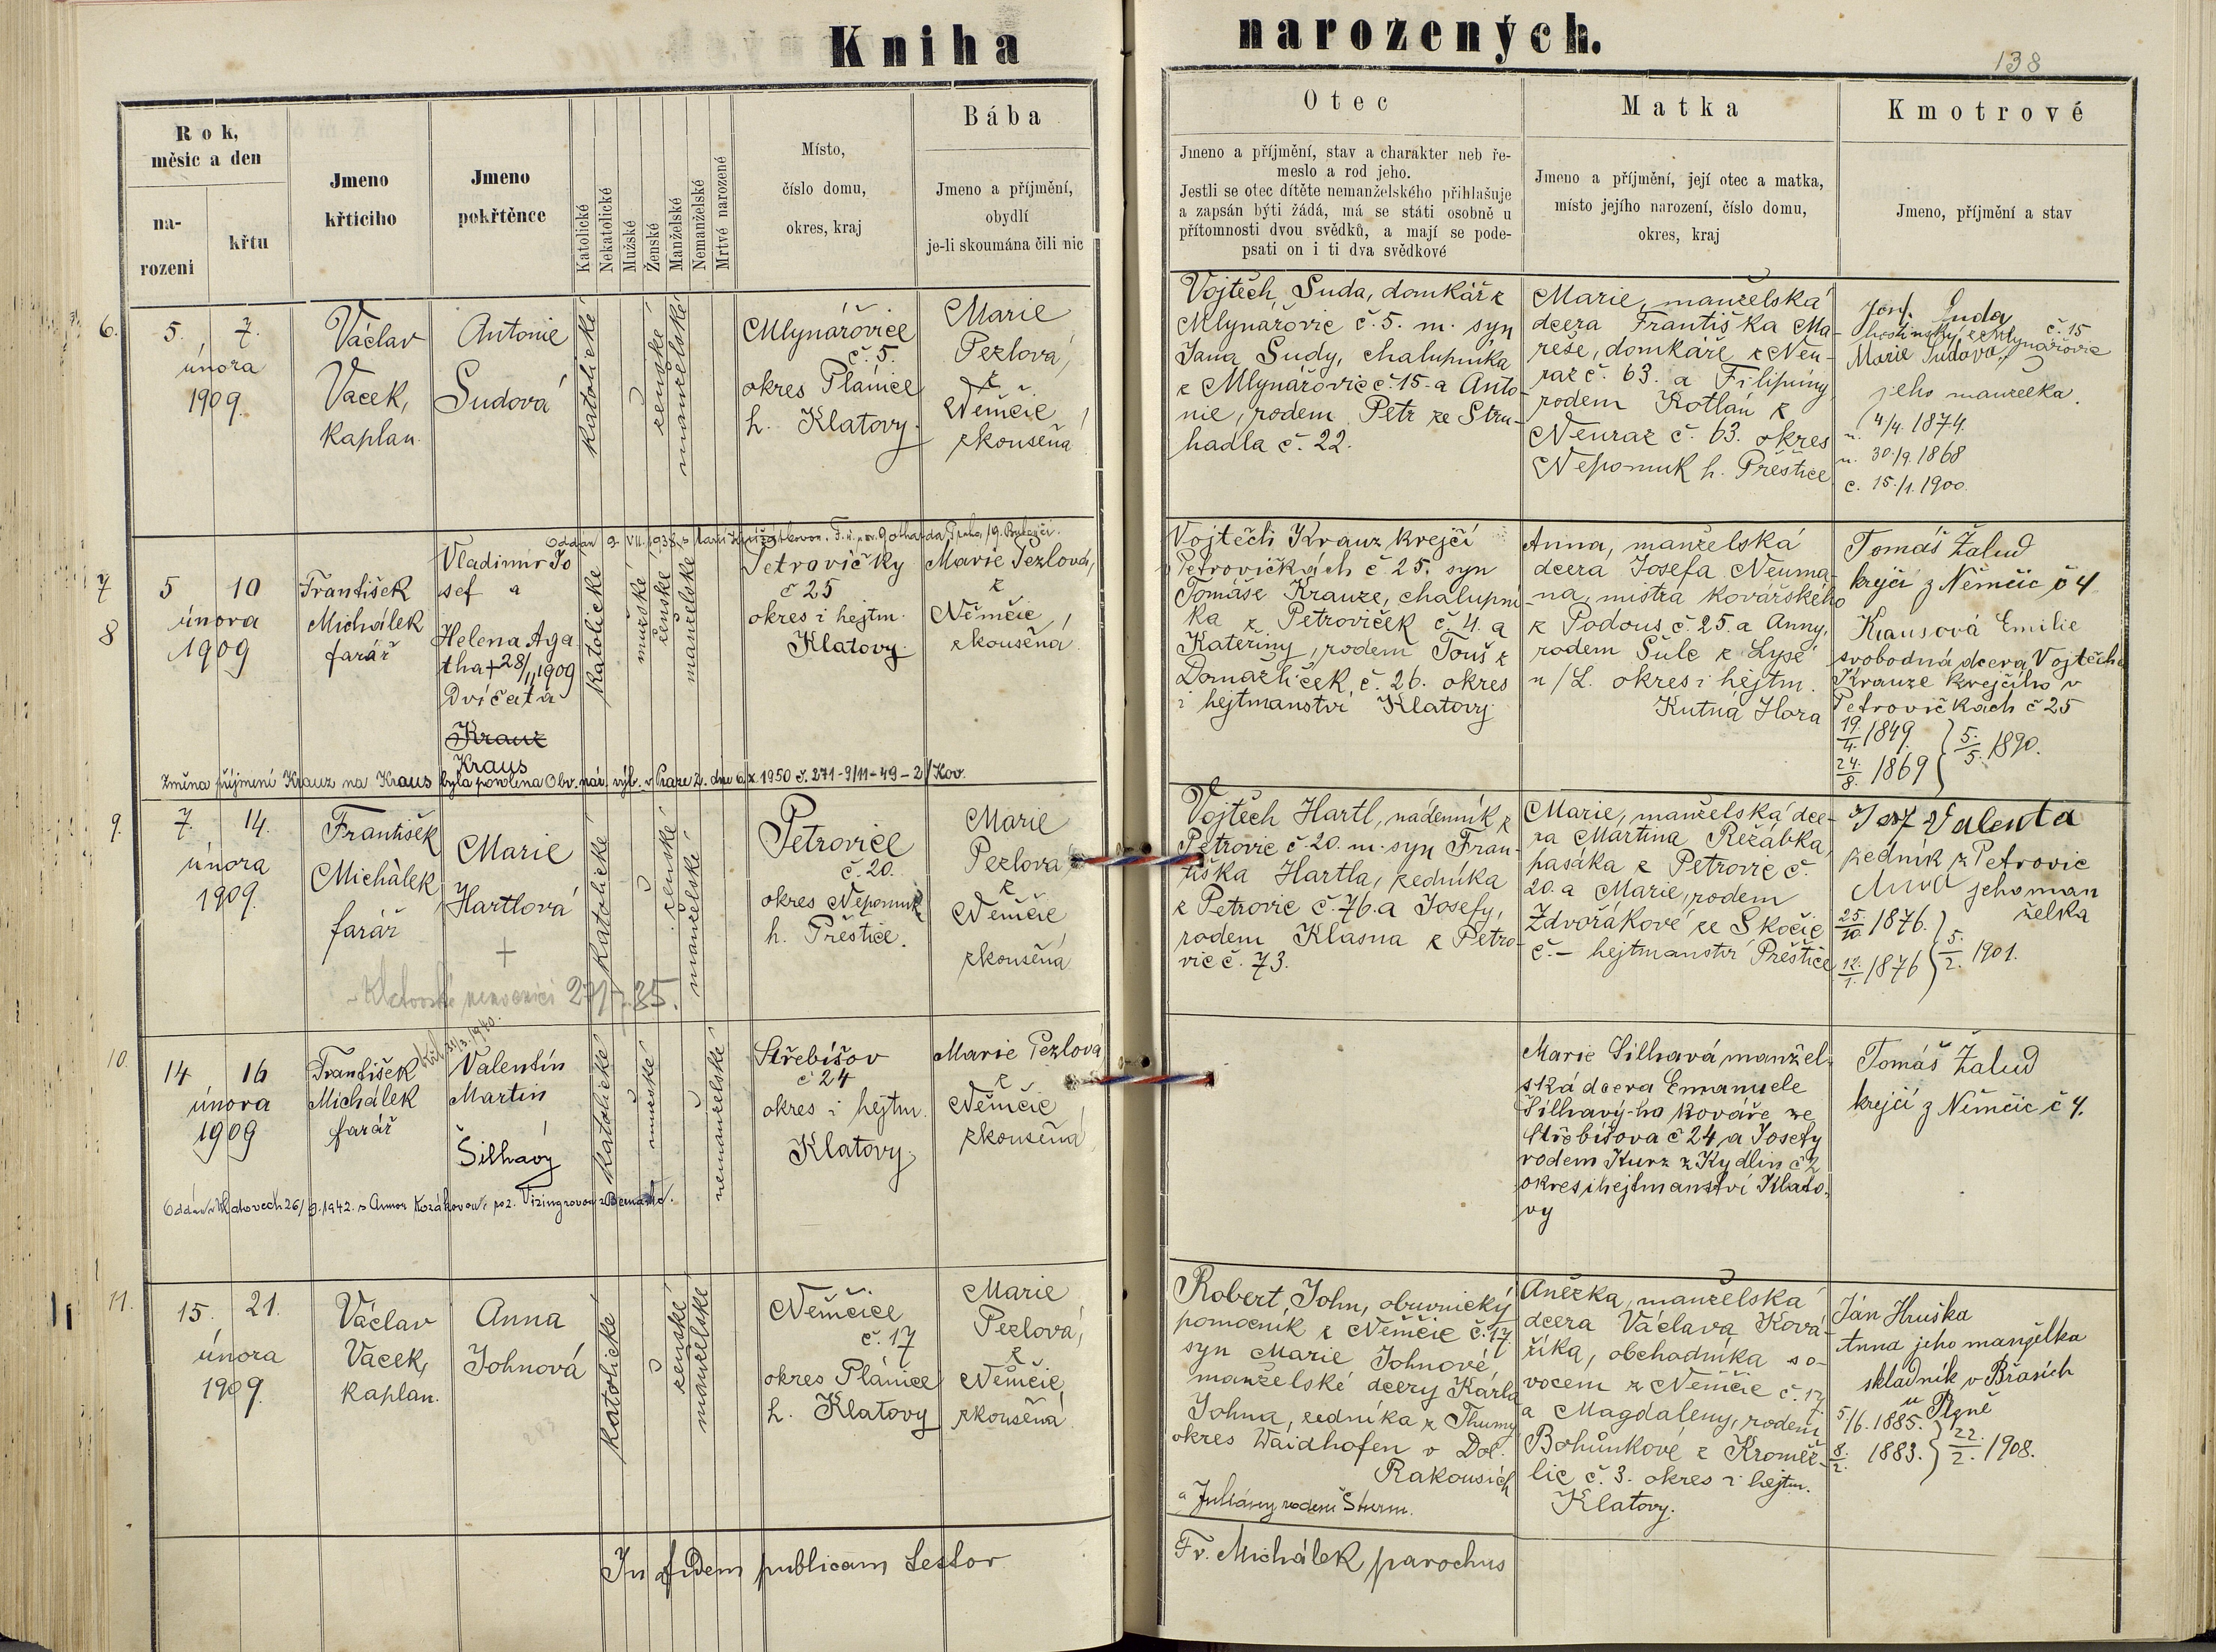 Kniha
narozených.
138
Rok,
měsíc a den
na-
rozeni
křtu
Jmeno
křticiho
Jmeno
pokřtěnce
Katolické
Nekatolické
Mužské
Ženské
Manželské
Nemanželské
Mrtvé narozené
Místo,
číslo domu,
okres, kraj
Bába
Jmeno a příjmění,
obydlí
je-li skoumána čili nic
Otec
Jmeno a příjmění, stav a charakter neb ře-
meslo a rod jeho.
Jestli se otec dítěte nemanželského přihlašuje
a zapsán býti žádá, má se státi osobně u
přítomnosti dvou svědků, a mají se pode-
psati on i ti dva svědkové
Matka
Jmeno a příjmění, její otec a matka,
místo jejího narození, číslo domu,
okres, kraj
Kmotrové
Jmeno, příjmění a stav
6.
5. 7.
února
1909.
Václav
Vacek,
kaplan.
Antonie
Sudová
katolické
ženské
manželské
Mlynářovice
č. 5.
okres Plánice
h. Klatovy.
Marie
Pezlová,
z
Němčic,
zkoušená
Vojtěch Suda, domkář z
Mlynářovic č. 5. m. syn
Jana Sudy, chalupníka
z Mlynářovic č. 15. a Anto-
nie, rodem Petr ze Stru-
hadla č. 22.
Marie, manželská
dcera Františka Ma-
reše, domkáře z Neu-
raz č. 63. a Filipíny
rodem Kotlan z
Neuraz č. 63. okres
Nepomuk h. Přeštice
Josef Suda
z Mlynářovic č. 15
Marie Sudová,
jeho manželka.
n. 4/4. 1874.
n. 30./9. 1868
c. 15./1. 1900.
7
8
5 10
února
1909
František
Michálek
farář
Oddán 9. VII. 1938 s
Vladimír Jo
sef a
Helena Aga
tha + 28/II 1909
Dvíčata
Krauz
Kraus
katolické
mužské
ženské
manželské
Petrovičky
č 25
okres i hejtm.
Klatovy.
Marie Pezlová,
z
Němčic,
zkoušená
Změna příjmení Krauz na Kraus byla povolena Obv. nár. výb. v Praze 2. dne 6.X.1950 č. 271-9/11-49-2/Kov.
Vojtěch Krauz krejčí
v Petrovičkách č. 25. syn
Tomáše Krauze, chalupní-
ka z Petroviček č. 4. a
Kateřiny, rodem Touš z
Domažliček, č. 26. okres
i hejtmanství Klatovy
Anna, manželská
dcera Josefa Neuma-
na, mistra kovářského
z Podous č. 25. a Anny,
rodem Šulc z Lysé
n/L. okres i hejtm.
Kutná Hora
Tomáš Žalud
krejčí z Němčic č 4
Krausová Emilie
svobodná dcera Vojtěcha
Krauze krejčího v
Petrovičkách č 25
19./4. 1849.
24./8. 1869 } 5./5. 1890.
9.
7. 14.
února
1909.
František
Michálek,
farář
Marie
Hartlová
+
v Klatovské nemocnici 27/7.85.
katolické
ženské
manželské
Petrovice
č. 20.
okres Nepomuk
h. Přeštice.
Marie
Pezlová
z
Němčic,
zkoušená
Vojtěch Hartl, nádenník z
Petrovic č. 20. m. syn Fran-
tiška Hartla, zedníka
z Petrovic č. 76. a Josefy,
rodem Klasna z Petro-
vic č. 73.
Marie, manželská dce-
ra Martina Režábka,
pasáka z Petrovic č.
20. a Marie, rodem
Zdvořákové ze Skočic
č. – hejtmanství Přeštice
Josef Valenta
zedník z Petrovic
Anna jeho man
želka
25./10. 1876.
12./1. 1876 } 5./2. 1901.
10.
14 16
února
1909
František
Michálek
farář
Valentin
Martin
Šilhavý
katolické
mužské
nemanželské
Střebíšov
č 24
okres i hejtm.
Klatovy.
Marie Pezlová
z
Němčic
zkoušená
Oddán v Klatovech 26/9. 1942. s Annou Kozákovou, roz. Vizingrovou z
Marie Silhavá manžel-
ská dcera Emanuele
Šilhavý-ho kováře ze
Střebíšova č 24 a Josefy
rodem Kurz z Kydlin č 2
okres i hejtmanství Klato-
vy
Tomáš Žalud
krejčí z Němčic č 4.
11.
15. 21.
února
1909.
Václav
Vacek,
kaplan.
Anna
Johnová
katolické
ženské
manželské
Němčice
č. 17
okres Plánice
h. Klatovy
Marie
Pezlová,
z
Němčic,
zkoušená
Robert John, obuvnický
pomocník z Němčic č. 17
syn Marie Johnové,
manželské dcery Karla
Johna, zedníka z Thumy
okres Waidhofen v Dol.
Rakousích
a Juliány rodem Sturm.
Anežka, manželská
dcera Václava Ková-
říka, obchodníka s o-
vocem z Němčic č. 17
a Magdaleny, rodem
Bohůnkové z Kroměž-
lic č. 3. okres i hejtm.
Klatovy.
Ján Hruška
Anna jeho manželka
skladník v Břasích
u Plzně
5./6. 1885.
8./2. 1883. } 22./2. 1908.
In fidem publicam testor
Fr. Michálek parochus